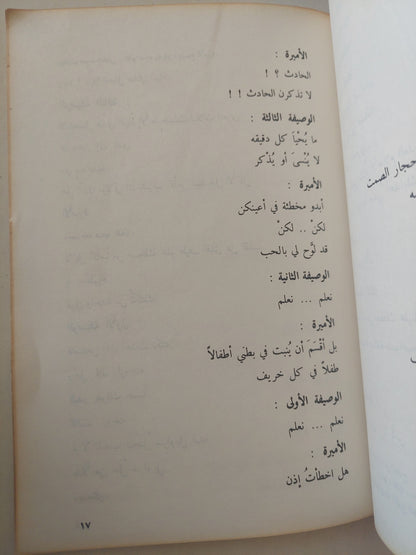 الأميرة :
الحادث ؟ !
لا تذكرن الحادث ! !
الوصيفة الثالثة :
ما يُحْيَا كل دقيقه
لا يُنْسىَ أو يُذْكر
الأميرة :
أبدو مخطئة في أعينكن
لكنْ .. لكنْ
قد لوَّح لي بالحب
الوصيفة الثانية :
نعلم ... نعلم
الأميرة :
بل أقْسَمَ أن يُنبت في بطني أطفالاً
طفلاً في كل خريف
الوصيفة الأولى :
نعلم ... نعلم
الأميرة :
هل اخطأتُ إذن
١٧
حجار الصمت